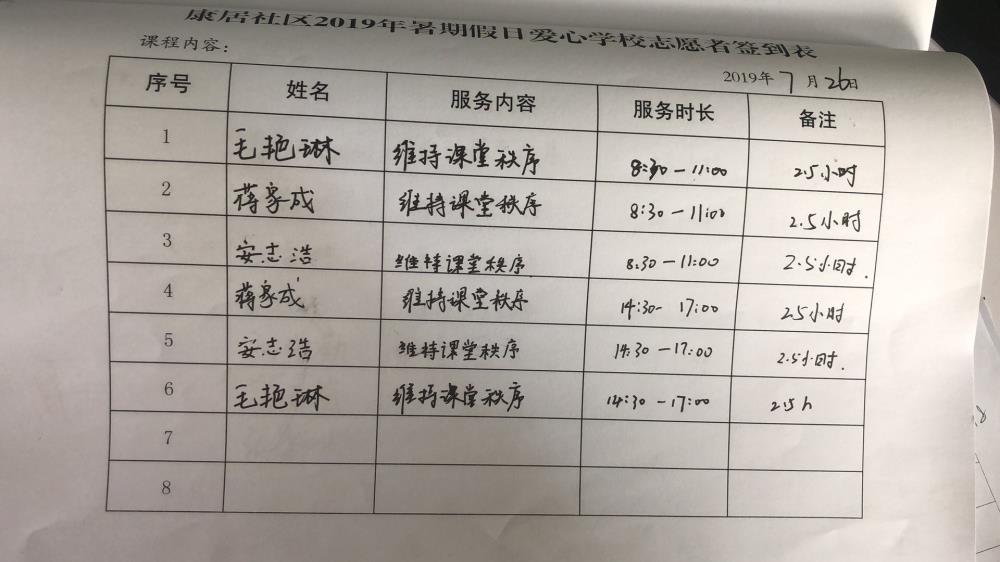 康居社区2019年暑期假日爱心学校志愿者签到表
课程内容：
2019年7月26日
序号 姓名 服务内容 服务时长 备注
1 毛艳琳 维持课堂秩序 8:30—11:00 2.5小时
2 蒋家成 维持课堂秩序 8:30—11:00 2.5小时
3 安志浩 维持课堂秩序 8:30—11:00 2.5小时.
4 蒋家成 维持课堂秩序 14:30-17:00 2.5小时
5 安志浩 维持课堂秩序 14:30-17:00 2.5小时.
6 毛艳琳 维持课堂秩序 14:30—17:00 2.5h
7
8